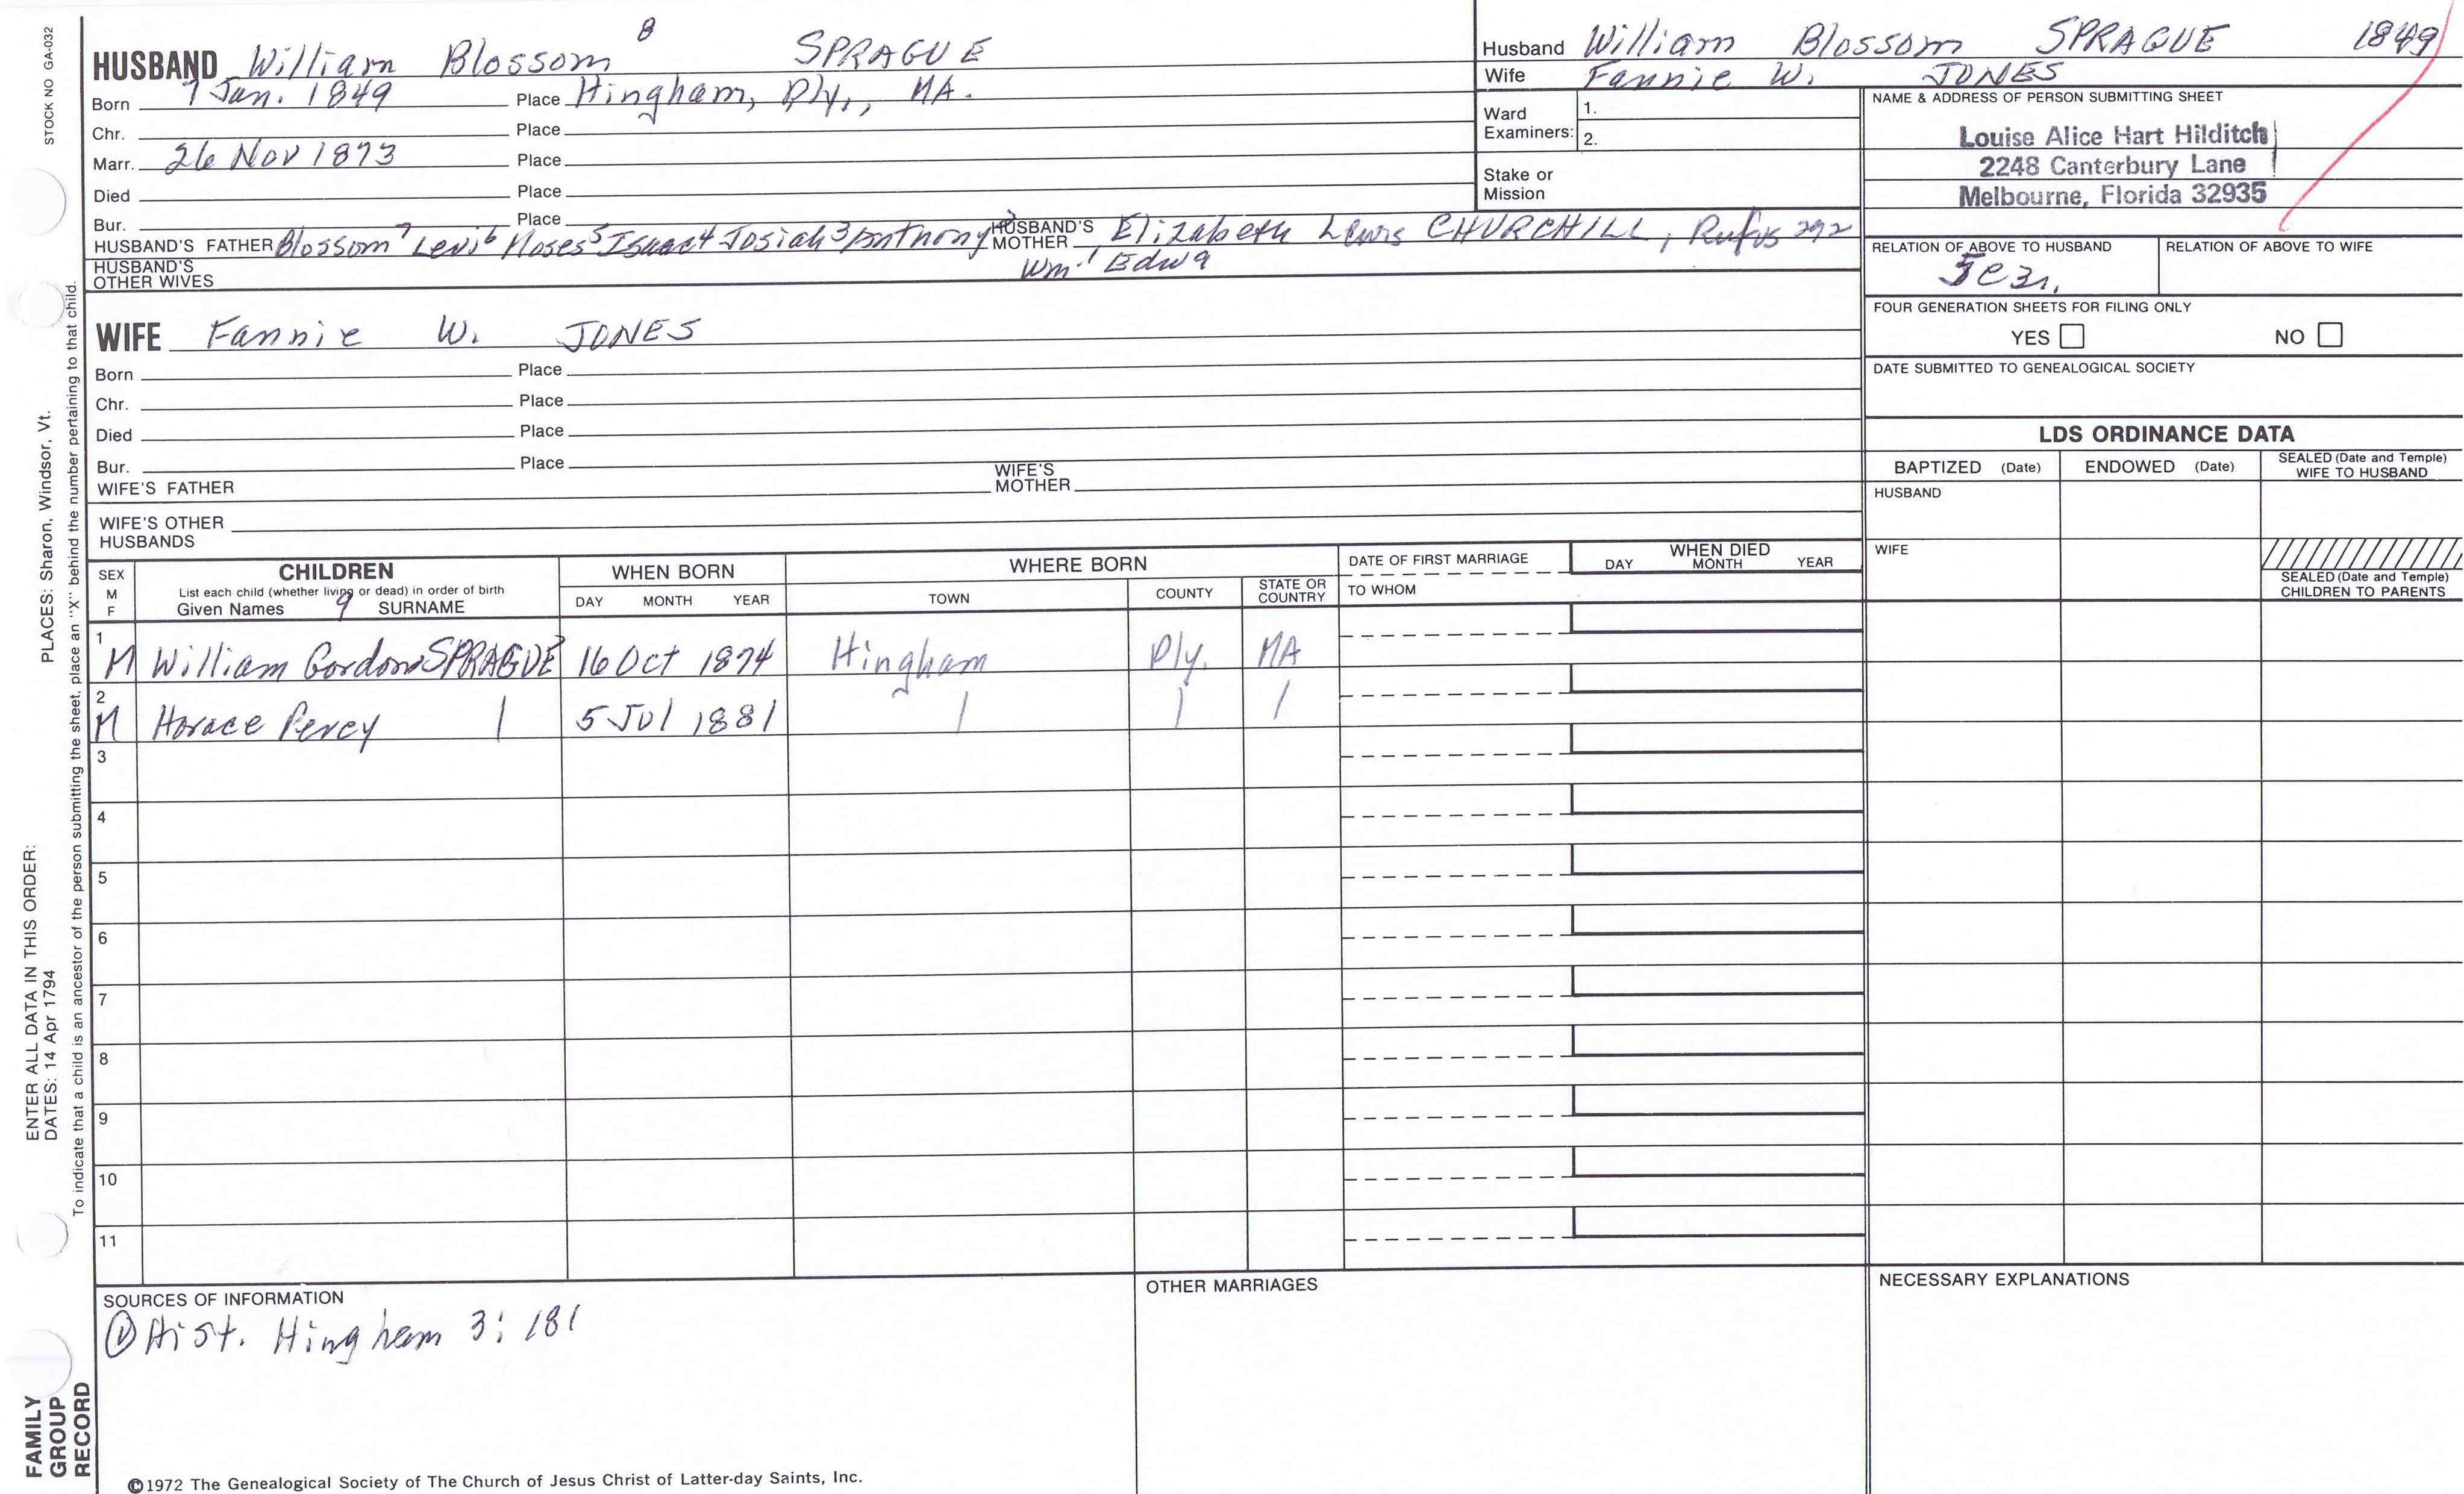 STOCK NO GA-032
HUSBAND William Blossom 8 SPRAGUE
Born 7 Jan. 1849 Place Hingham, Ply., MA.
Chr. Place
Marr. 26 Nov 1873 Place
Died Place
Bur. Place
HUSBAND'S FATHER Blossom 7 Levi 6 Moses 5 Isaac 4 Josiah 3 Anthony 2 HUSBAND'S MOTHER Elizabeth Lewis CHURCHILL, Rufus 292
Wm. 1 Edw a
HUSBAND'S OTHER WIVES
WIFE Fannie W. JONES
Born Place
Chr. Place
Died Place
Bur. Place
WIFE'S FATHER WIFE'S MOTHER
WIFE'S OTHER HUSBANDS
Husband William Blossom SPRAGUE 1849
Wife Fannie W. JONES
Ward Examiners: 1.
2.
Stake or Mission
NAME & ADDRESS OF PERSON SUBMITTING SHEET
Louise Alice Hart Hilditch
2248 Canterbury Lane
Melbourne, Florida 32935
RELATION OF ABOVE TO HUSBAND RELATION OF ABOVE TO WIFE
FOUR GENERATION SHEETS FOR FILING ONLY
YES NO
DATE SUBMITTED TO GENEALOGICAL SOCIETY
LDS ORDINANCE DATA
BAPTIZED (Date) ENDOWED (Date) SEALED (Date and Temple) WIFE TO HUSBAND
HUSBAND
WIFE
SEALED (Date and Temple) CHILDREN TO PARENTS
SEX M F CHILDREN WHEN BORN WHERE BORN DATE OF FIRST MARRIAGE WHEN DIED
List each child (whether living or dead) in order of birth
Given Names 9 SURNAME DAY MONTH YEAR TOWN COUNTY STATE OR COUNTRY TO WHOM DAY MONTH YEAR
1 M William Gordon SPRAGUE 16 Oct 1874 Hingham Ply. MA
2 M Horace Percy | 5 Jul 1881 | | |
3
4
5
6
7
8
9
10
11
SOURCES OF INFORMATION
① Hist. Hingham 3: 181
OTHER MARRIAGES
NECESSARY EXPLANATIONS
©1972 The Genealogical Society of The Church of Jesus Christ of Latter-day Saints, Inc.
PLACES: Sharon, Windsor, Vt.
To indicate that a child is an ancestor of the person submitting the sheet, place an "X" behind the number pertaining to that child.
ENTER ALL DATA IN THIS ORDER:
DATES: 14 Apr 1794
FAMILY
GROUP
RECORD